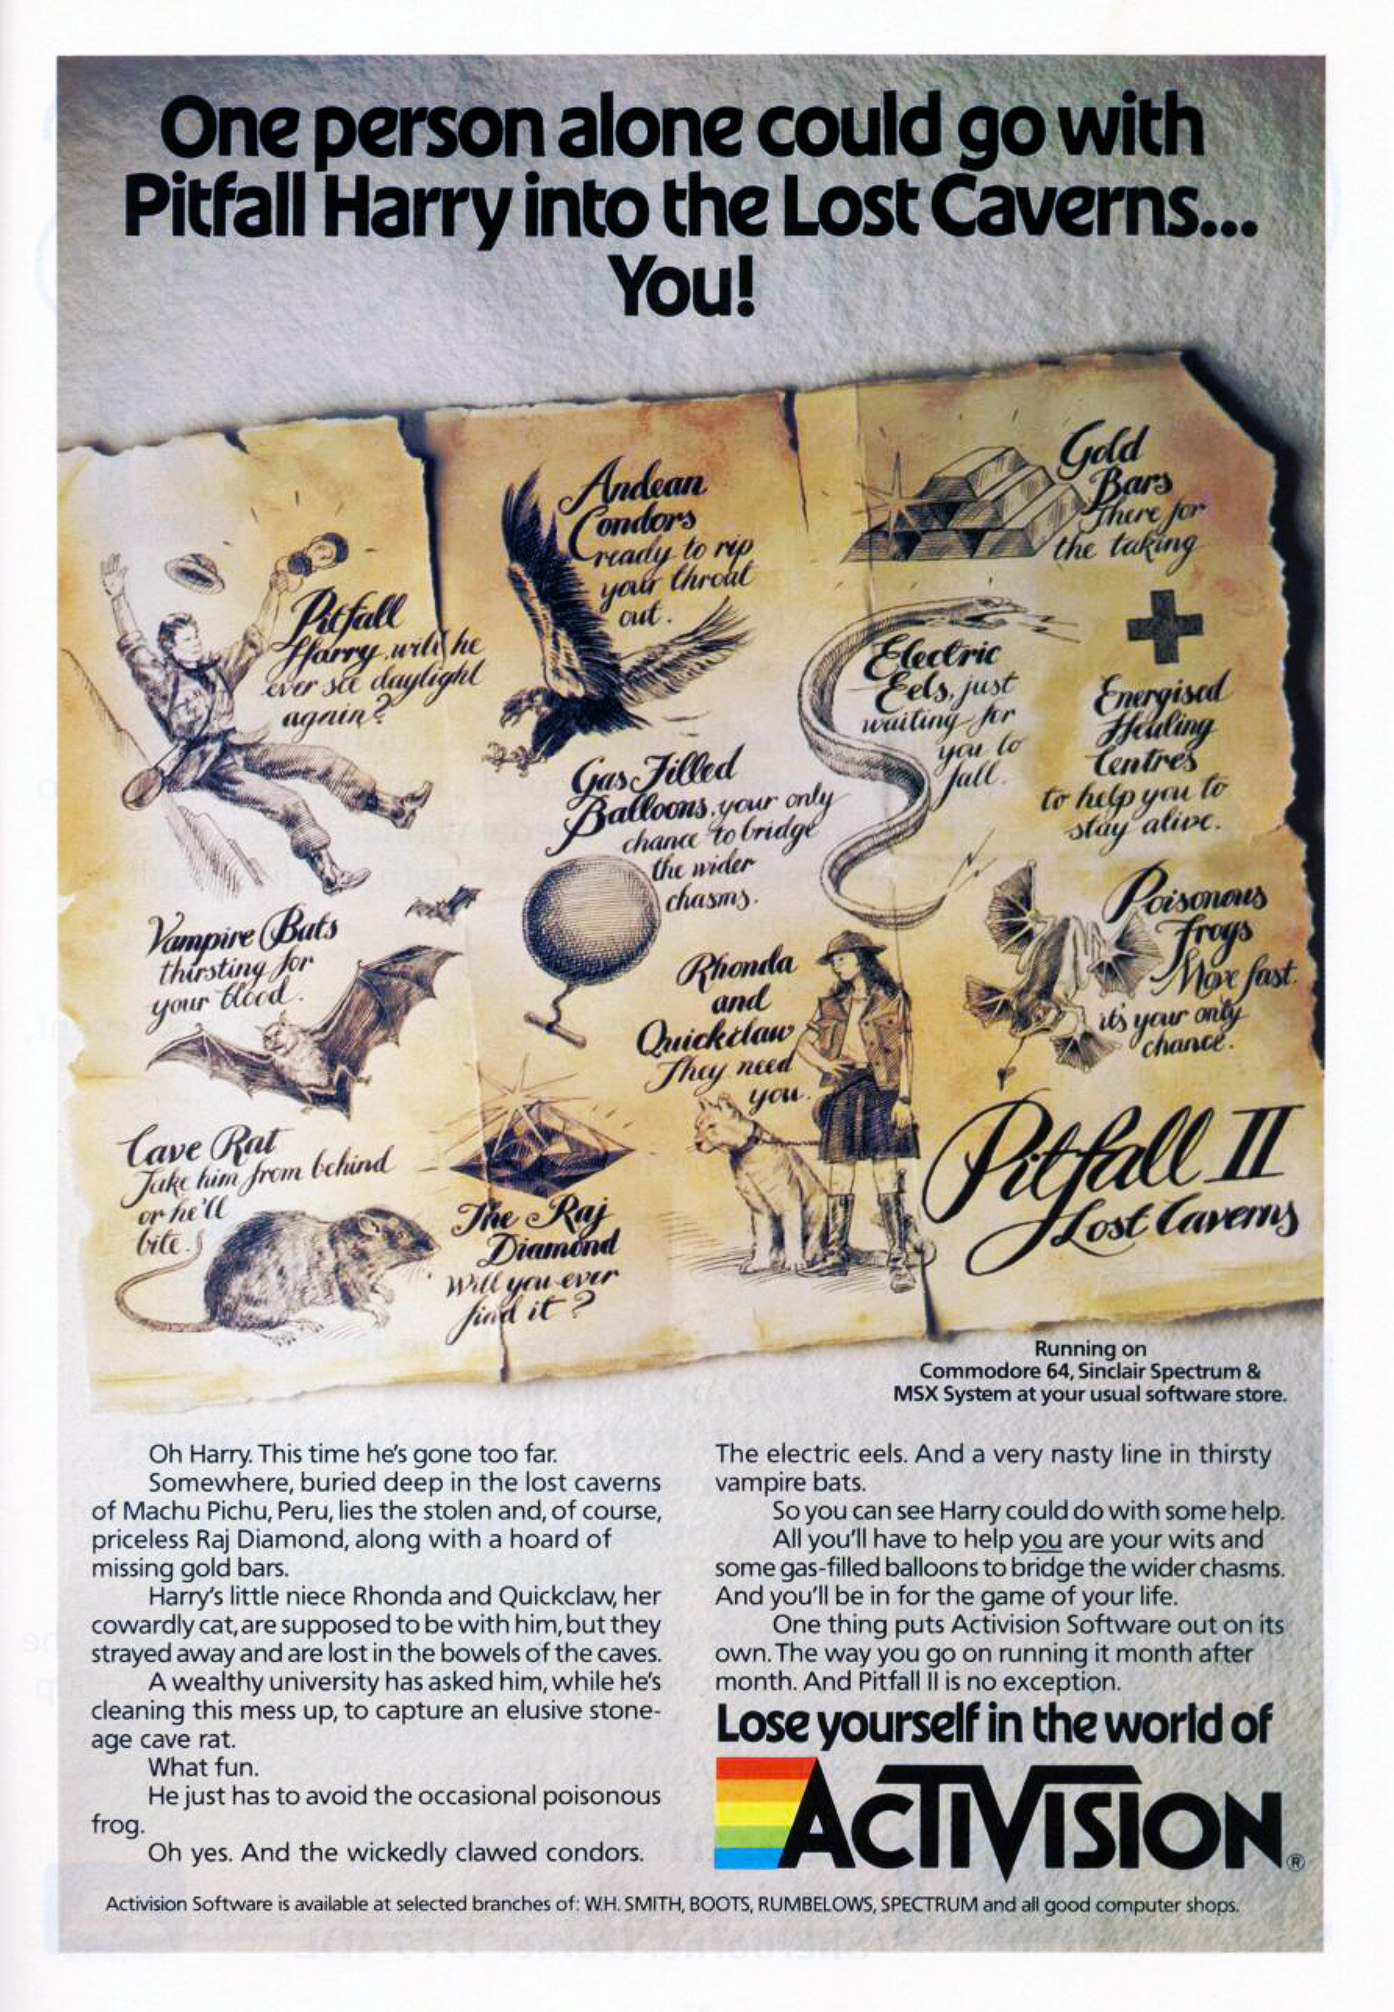 One person alone could go with
Pitfall Harry into the Lost Caverns...
You!
Pitfall
Harry, will he
ever see daylight
again?
Andean
Condors
ready to rip
your throat
out.
Gold
Bars
There for
the taking
Electric
Eels, just
waiting for
you to
fall.
Energised
Healing
Centres
to help you to
stay alive.
Gas Filled
Balloons, your only
chance to bridge
the wider
chasms.
Vampire Bats
thirsting for
your blood.
Rhonda
and
Quickclaw
They need
you.
Poisonous
Frogs
Move fast.
it's your only
chance.
Cave Rat
Take him from behind
or he'll
bite.
The Raj
Diamond
Will you ever
find it?
Pitfall II
Lost Caverns
Running on
Commodore 64, Sinclair Spectrum &
MSX System at your usual software store.
Oh Harry. This time he's gone too far.
Somewhere, buried deep in the lost caverns
of Machu Pichu, Peru, lies the stolen and, of course,
priceless Raj Diamond, along with a hoard of
missing gold bars.
Harry's little niece Rhonda and Quickclaw, her
cowardly cat, are supposed to be with him, but they
strayed away and are lost in the bowels of the caves.
A wealthy university has asked him, while he's
cleaning this mess up, to capture an elusive stone-
age cave rat.
What fun.
He just has to avoid the occasional poisonous
frog.
Oh yes. And the wickedly clawed condors.
The electric eels. And a very nasty line in thirsty
vampire bats.
So you can see Harry could do with some help.
All you'll have to help you are your wits and
some gas-filled balloons to bridge the wider chasms.
And you'll be in for the game of your life.
One thing puts Activision Software out on its
own. The way you go on running it month after
month. And Pitfall II is no exception.
Lose yourself in the world of
ACTIVISION®
Activision Software is available at selected branches of: W.H. SMITH, BOOTS, RUMBELOWS, SPECTRUM and all good computer shops.